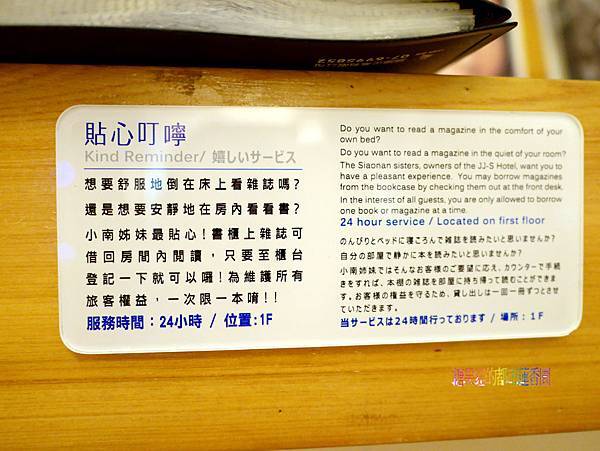 貼心叮嚀
Kind Reminder/ 嬉しいサービス
想要舒服地倒在床上看雜誌嗎?
還是想要安靜地在房內看看書?
小南姊妹最貼心!書櫃上雜誌可
借回房間內閱讀,只要至櫃台
登記一下就可以囉!為維護所有
旅客權益,一次限一本唷!!
服務時間:24小時 / 位置:1F
Do you want to read a magazine in the comfort of your
own bed?
Do you want to read a magazine in the quiet of your room?
The Siaonan sisters, owners of the JJ-S Hotel, want you to
have a pleasant experience. You may borrow magazines
from the bookcase by checking them out at the front desk.
In the interest of all guests, you are only allowed to borrow
one book or magazine at a time.
24 hour service / Located on first floor
のんびりとベッドに寝ころんで雑誌を読みたいと思いませんか?
自分の部屋で静かに本を読みたいと思いませんか?
小南姉妹ではそんなお客様のご要望に応え、カウンターで手続
きをすれば、本棚の雑誌を部屋に持ち帰って読むことができま
す。お客様の権益を守るため、貸し出しは一回一冊ずつとさせ
ていただきます。
当サービスは24時間行っております / 場所:1F